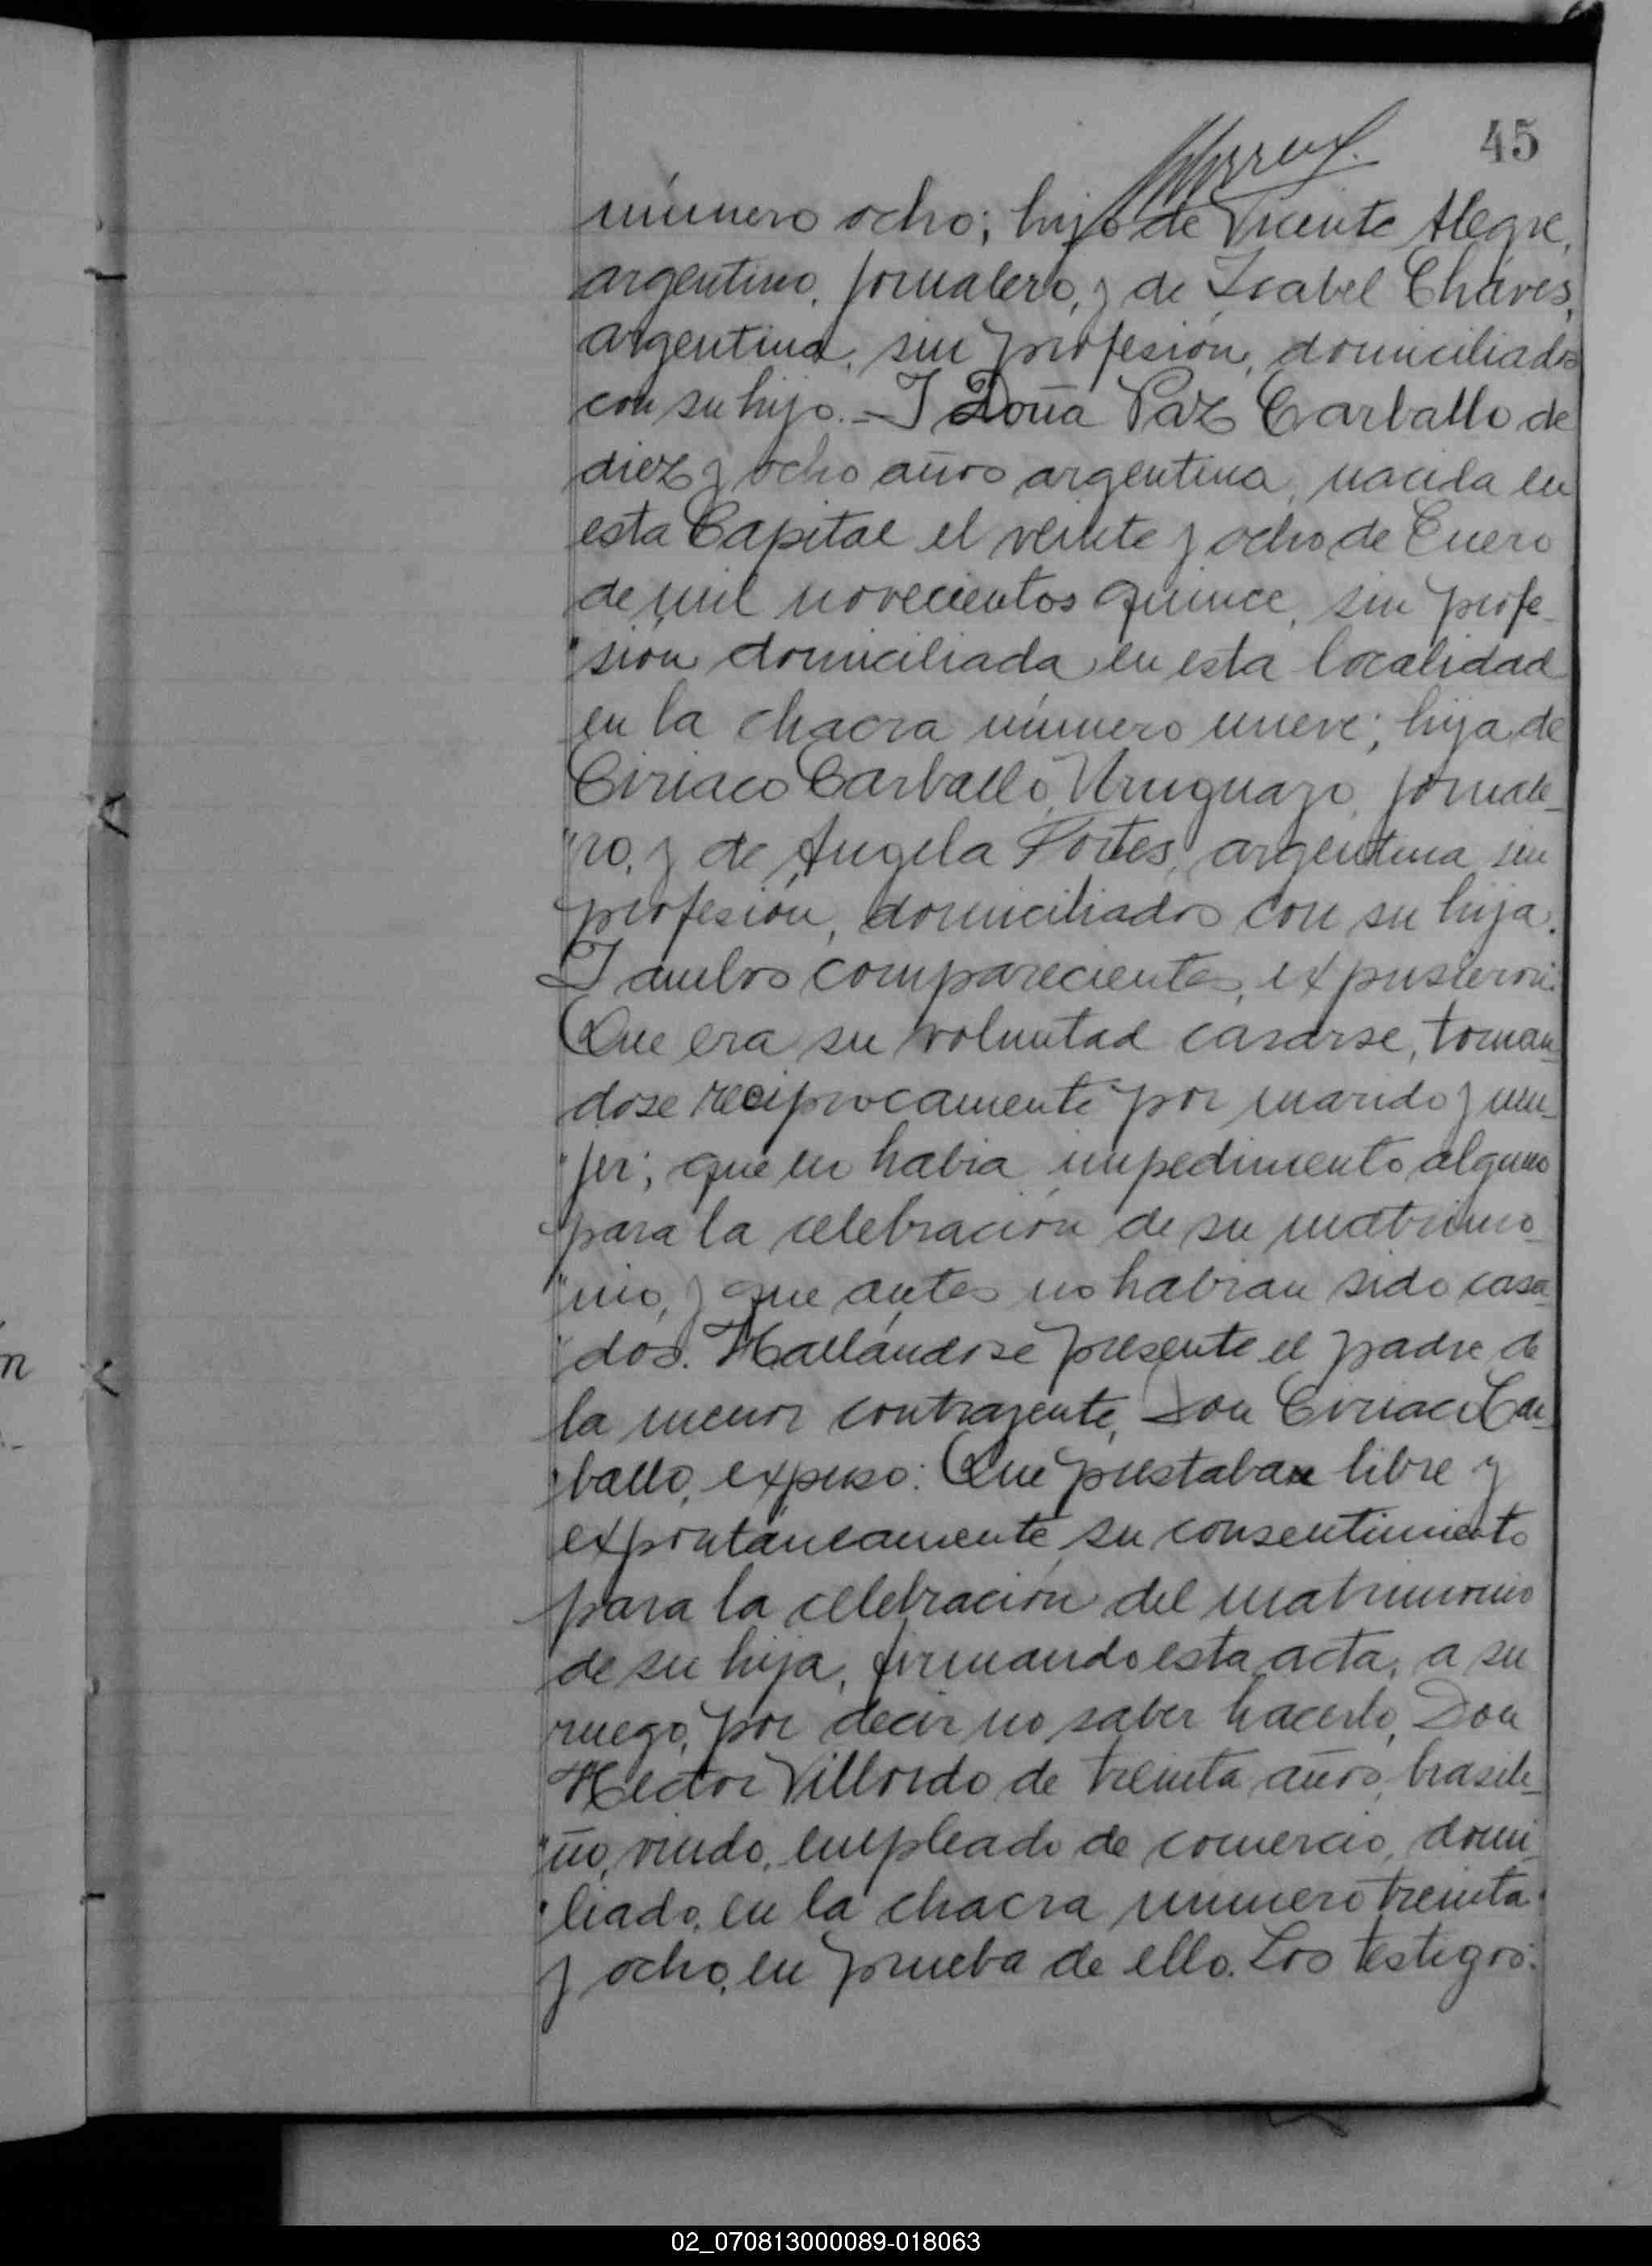 45
número ocho; hijo de Vicente Alegre,
argentino, jornalero, y de Isabel Cháves,
argentina, sin profesión, domiciliados
con su hijo.- I Doña Paz Carballo de
diez y ocho años argentina, nacida en
esta Capital el veinte y ocho de Enero
de mil novecientos quince, sin profe-
"sión domiciliada en esta localidad
en la chacra número nueve; hija de
Ciriaco Carballo, Uruguayo, jornale-
"ro, y de Angela Portes, argentina sin
profesión, domiciliados con su hija.
I ambos comparecientes, expusieron:
Que era su voluntad casarse, toman-
dose reciprocamente por marido y mu-
"jer; que no habia impedimento alguno
para la celebración de su matrimo-
"nio, y que antes no habian sido casa-
"dos. Hallándose presente el padre de
la menor contrayente, Don Ciriaco Car-
"ballo, expuso: Que prestaba libre y
expontáneamente su consentimiento
para la celebración del matrimonio
de su hija, firmando esta acta, a su
ruego, por decir no saber hacerlo, Don
Hector Villordo de treinta años, brasile-
"ño, viudo, empleado de comercio, domi-
"liado, en la chacra número treinta
y ocho, en prueba de ello. Los testigos:
02_070813000089-018063